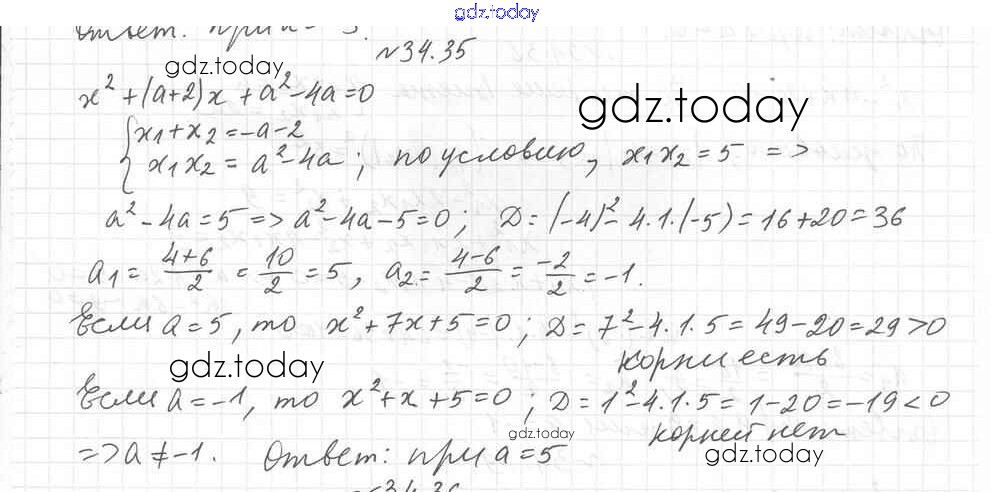 gdz.today
Ответ: при a = 5.
№34.35
gdz.today
x² + (a+2)x + a² - 4a = 0
gdz.today
{ x₁ + x₂ = -a - 2
x₁x₂ = a² - 4a ; по условию, x₁x₂ = 5 =>
a² - 4a = 5 => a² - 4a - 5 = 0 ; D = (-4)² - 4·1·(-5) = 16 + 20 = 36
a₁ = (4+6)/2 = 10/2 = 5, a₂ = (4-6)/2 = -2/2 = -1.
Если a = 5, то x² + 7x + 5 = 0 ; D = 7² - 4·1·5 = 49 - 20 = 29 > 0
корни есть
gdz.today
Если a = -1, то x² + x + 5 = 0 ; D = 1² - 4·1·5 = 1 - 20 = -19 < 0
gdz.today
корней нет
=> a ≠ -1. Ответ: при a = 5
gdz.today